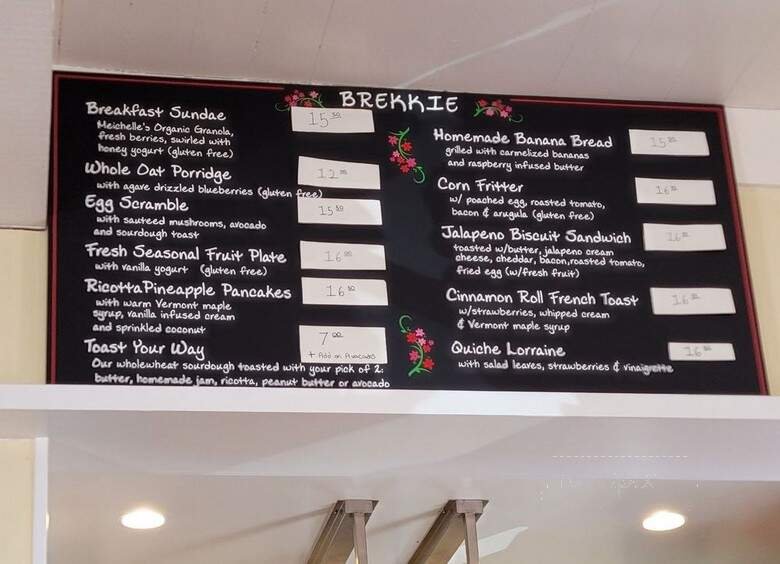 BREKKIE
Breakfast Sundae 15 50
Meichelle's Organic Granola,
fresh berries, swirled with
honey yogurt (gluten free)
Whole Oat Porridge
with agave drizzled blueberries (gluten free)
Egg Scramble 15 50
with sauteed mushrooms, avocado
and sourdough toast
Fresh Seasonal Fruit Plate 16 00
with vanilla yogurt (gluten free)
Ricotta Pineapple Pancakes 16 50
with warm Vermont maple
syrup, vanilla infused cream
and sprinkled coconut
Toast Your Way 7 00
+ Add on Avocado
Our wholewheat sourdough toasted with your pick of 2:
butter, homemade jam, ricotta, peanut butter or avocado
Homemade Banana Bread 15
grilled with carmelized bananas
and raspberry infused butter
Corn Fritter 16
w/ poached egg, roasted tomato,
bacon & arugula (gluten free)
Jalapeno Biscuit Sandwich 16
toasted w/butter, jalapeno cream
cheese, cheddar, bacon, roasted tomato,
fried egg (w/fresh fruit)
Cinnamon Roll French Toast 16
w/strawberries, whipped cream
& Vermont maple syrup
Quiche Lorraine 16
with salad leaves, strawberries & vinaigrette